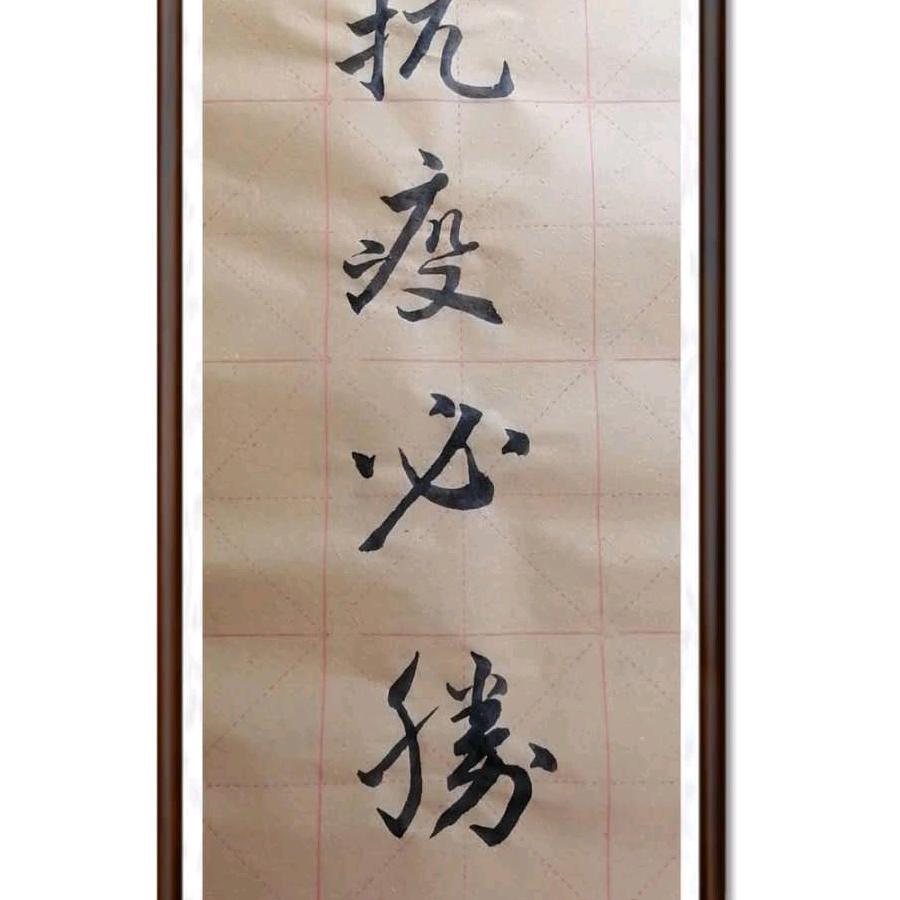 抗疫必勝